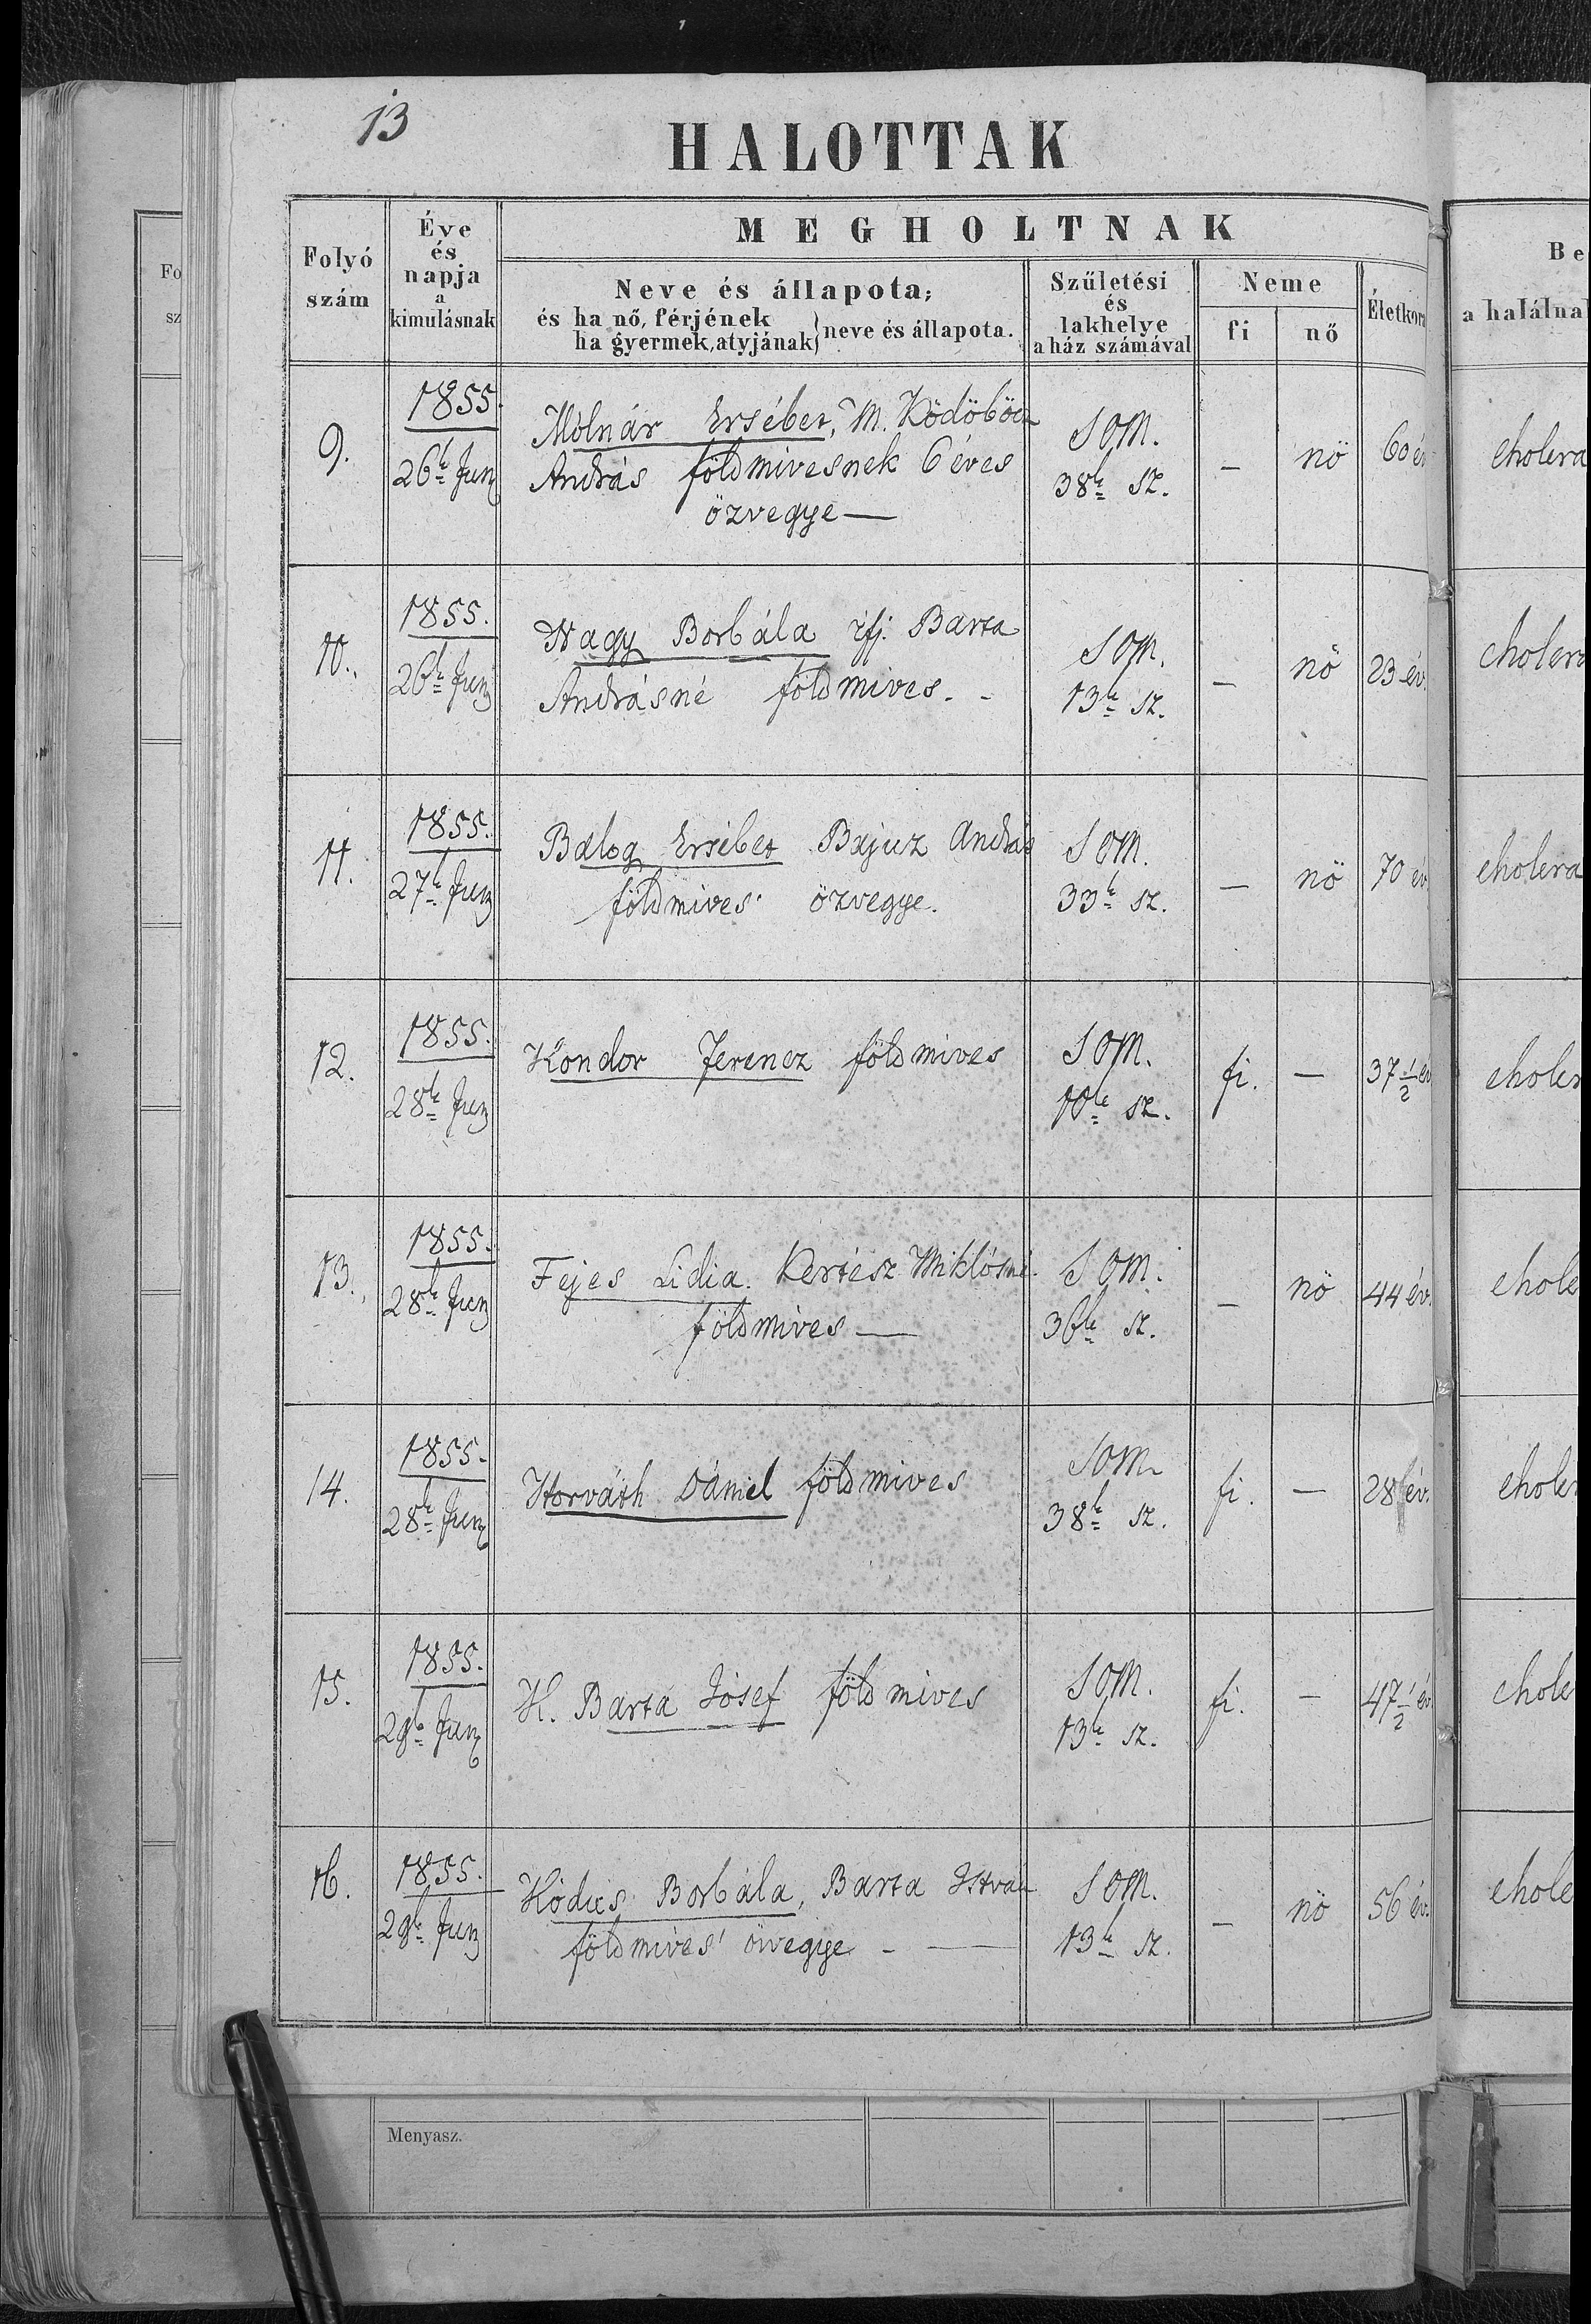 13
HALOTTAK
Folyó
szám
Éve
és
napja
a
kimulásnak
MEGHOLTNAK
Neve és állapota;
és ha nő, férjének
ha gyermek, atyjának
neve és állapota.
Születési
és
lakhelye
a ház számával
Neme
fi
nő
Életkora
Be
a halálna
Fo
sz
9.
1855.
26k Jun
Molnár Ersébet, M. Ködöböcz
András földmivesnek 6 éves
özvegye —
SOM.
38k sz.
—
nö
60 év
cholera
10.
1855.
26k Jun
Nagy Borbála ifj. Barta
Andrásné földmives. -
SOM.
13k sz.
—
nö
23 év.
cholera
11.
1855.
27k Jun
Balog Ersébet Bajuz András
földmives' özvegye.
SOM.
33k sz.
—
nö
70 év.
cholera
12.
1855.
28k Jun
Kondor Ferencz földmives
SOM.
10k sz.
fi.
—
37 1/2 év
choler
13.
1855.
28k Jun
Fejes Lidia. Kertész Miklósné.
földmives —
SOM.
36k sz.
—
nö
44 év.
chole
14.
1855.
28k Jun
Horváth Dániel földmives
SOM.
38k sz.
fi.
—
28 év.
choler
15.
1855.
29k Jun
K. Barta Jósef földmives
SOM.
13k sz.
fi.
—
47 1/2 év.
chole
16.
1855.
29k Jun
Borbála, Barta István
földmives' övegye - —
SOM.
13k sz.
—
nö
56 év.
chole
Menyasz.